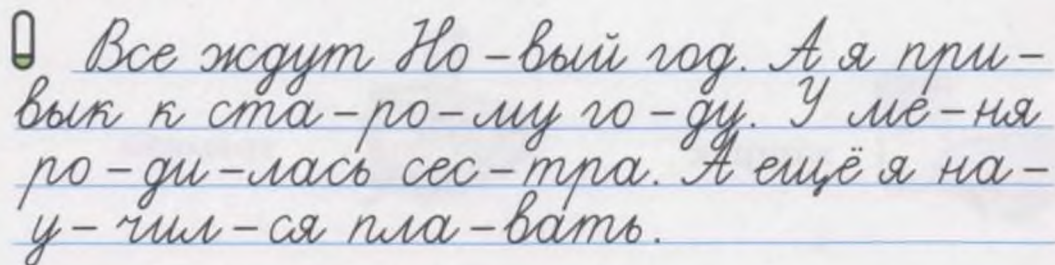 Все ждут Но-вый год. А я при-
вык к ста-ро-му го-ду. У ме-ня
ро-ди-лась сес-тра. А ещё я на-
у-чил-ся пла-вать.